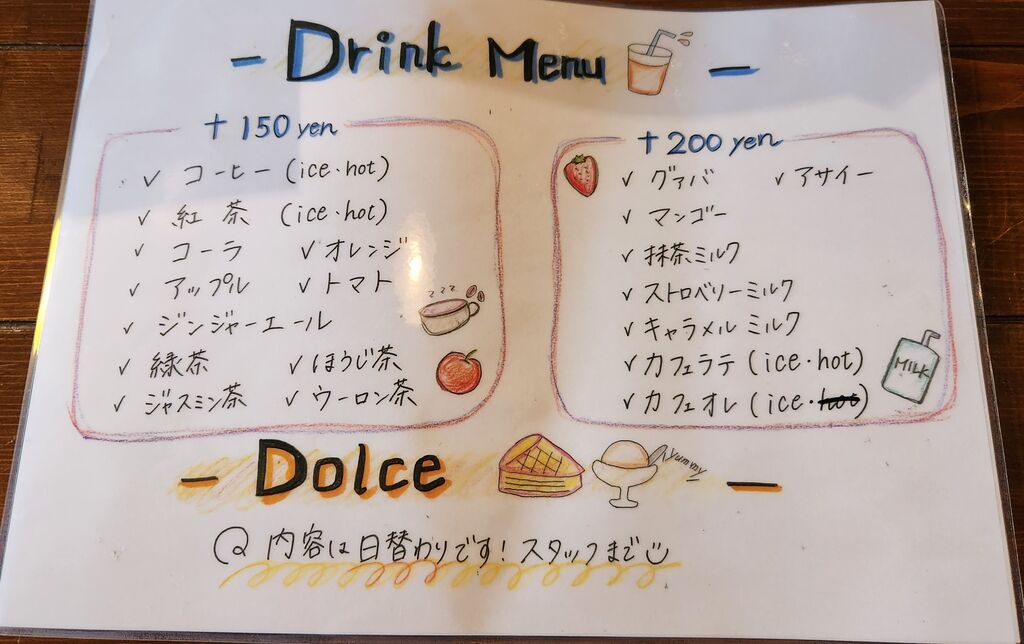 - Drink Menu -
+150 yen
✓ コーヒー (ice・hot)
✓ 紅茶 (ice・hot)
✓ コーラ ✓ オレンジ
✓ アップル ✓ トマト
✓ ジンジャーエール
✓ 緑茶 ✓ ほうじ茶
✓ ジャスミン茶 ✓ ウーロン茶
+200 yen
✓ グァバ ✓ アサイー
✓ マンゴー
✓ 抹茶ミルク
✓ ストロベリーミルク
✓ キャラメルミルク
✓ カフェラテ (ice・hot)
✓ カフェオレ (ice・hot)
MILK
- Dolce -
Yummy
内容は日替わりです！スタッフまで